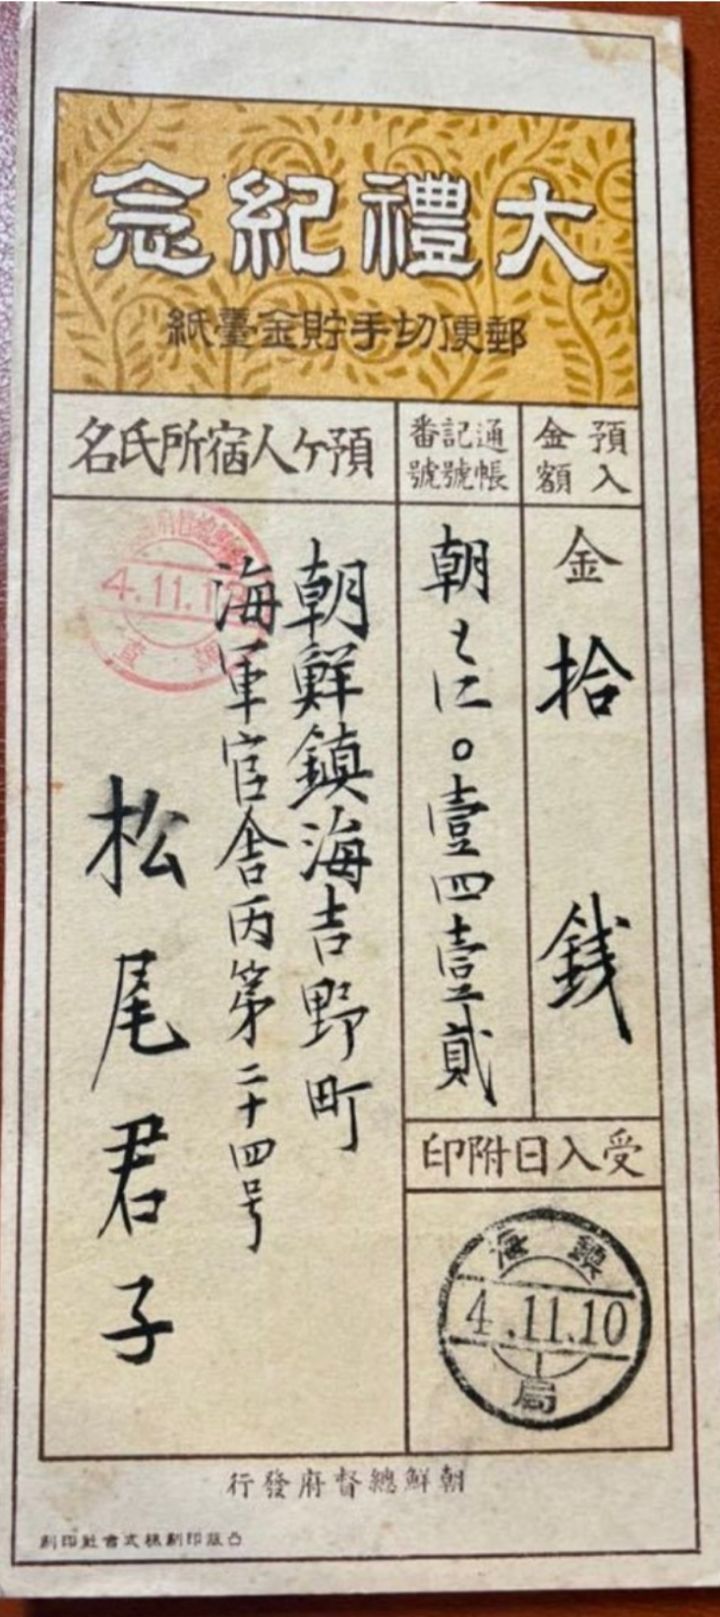 大禮紀念
郵便切手貯金臺紙
預入金額
金拾銭
通帳記號番號
朝とに〇壹四壹貳
受入日附印
鎮海
4.11.10
局
預ケ人宿所氏名
朝鮮鎮海吉野町
海軍官舎丙第二十四号
松尾君子
朝鮮總督府發行
凸版印刷株式會社印刷